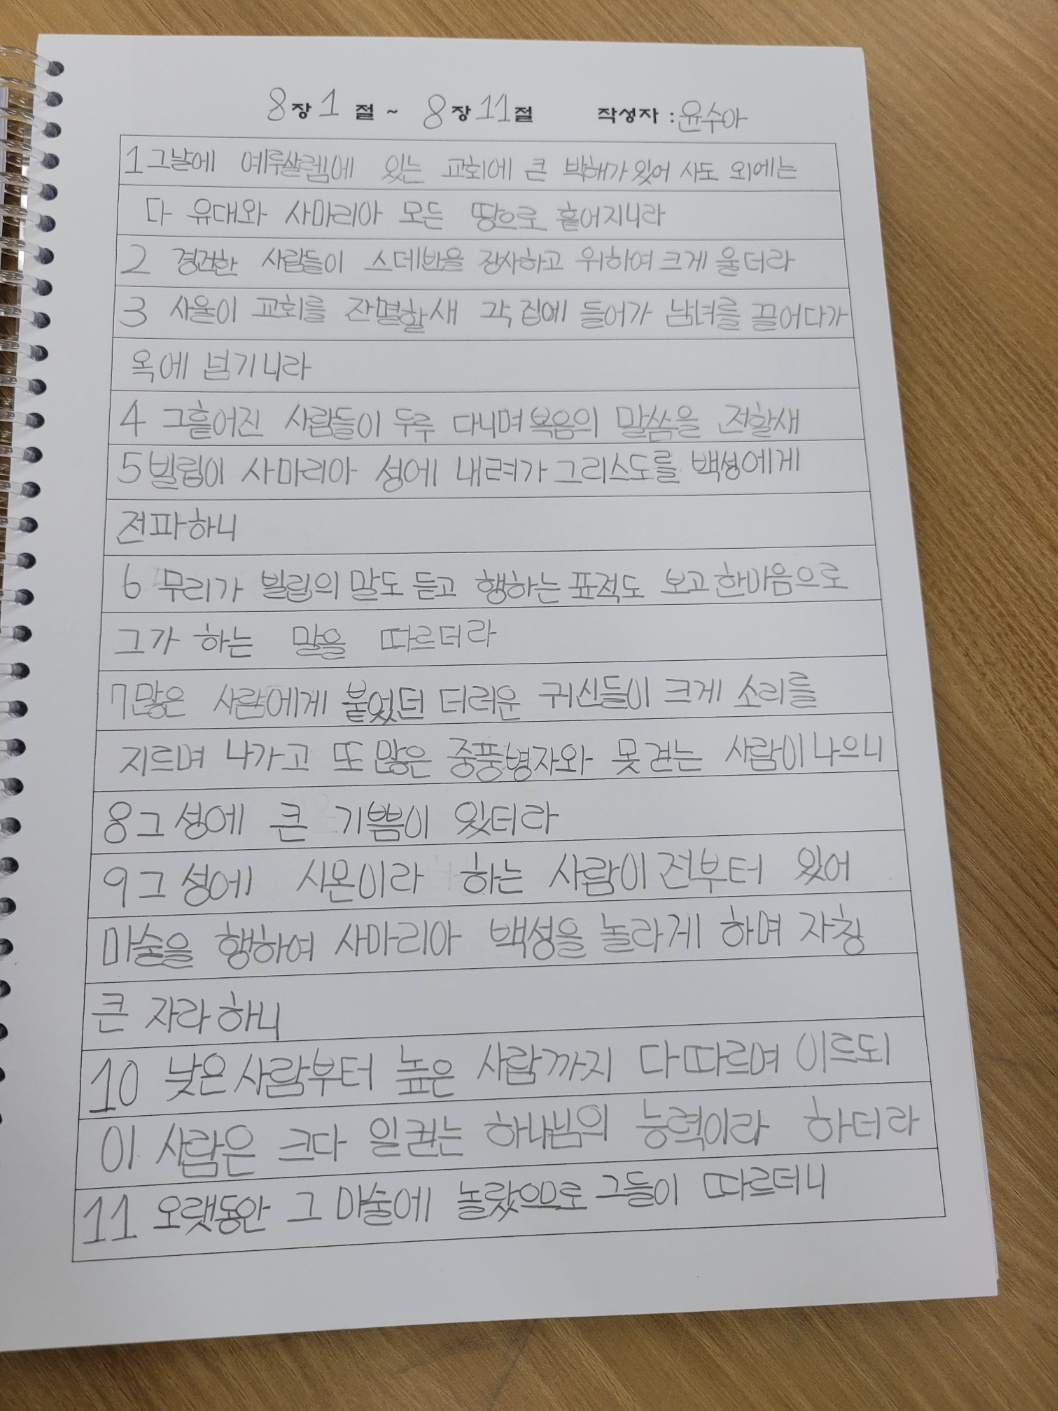 8장 1 절 ~ 8장 11절 작성자 : 윤수아
1 그날에 예루살렘에 있는 교회에 큰 박해가 있어 사도 외에는
다 유대와 사마리아 모든 땅으로 흩어지니라
2 경건한 사람들이 스데반을 장사하고 위하여 크게 울더라
3 사울이 교회를 잔멸할새 각 집에 들어가 남녀를 끌어다가
옥에 넘기니라
4 그 흩어진 사람들이 두루 다니며 복음의 말씀을 전할새
5 빌립이 사마리아 성에 내려가 그리스도를 백성에게
전파하니
6 무리가 빌립의 말도 듣고 행하는 표적도 보고 한마음으로
그가 하는 말을 따르더라
7 많은 사람에게 붙었던 더러운 귀신들이 크게 소리를
지르며 나가고 또 많은 중풍병자와 못 걷는 사람이 나으니
8 그 성에 큰 기쁨이 있더라
9 그 성에 시몬이라 하는 사람이 전부터 있어
마술을 행하여 사마리아 백성을 놀라게 하며 자칭
큰 자라 하니
10 낮은 사람부터 높은 사람까지 다 따르며 이르되
이 사람은 크다 일컫는 하나님의 능력이라 하더라
11 오랫동안 그 마술에 놀랐으므로 그들이 따르더니